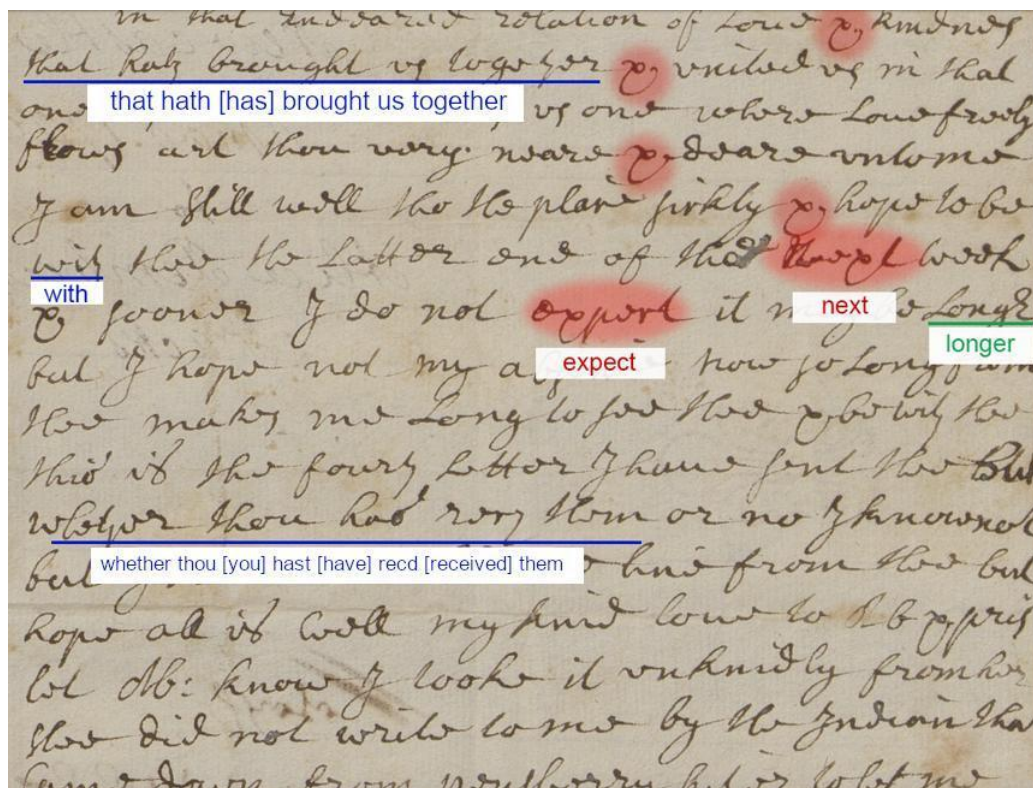 in that endeared relation of Loue & kindnes
that hath brought vs together & vnited vs in that
that hath [has] brought us together
one vs one where Loue freely
flows art thou very neare & deare vnto me
I am still well tho the place sickly & hope to be
with thee the Latter end of the next week
with
next
& sooner I do not expect it be Longr
expect
longer
but I hope not my now so Long from
thee makes me Long to see thee & be with thee
this is the fourth Letter I haue sent thee But
whether thou hast recd them or no I know not
whether thou [you] hast [have] recd [received] them
but line from thee but
hope all is well my kind loue to &
let know I tooke it vnkindly from her
shee did not write to me by the Indian that
came down from but let me